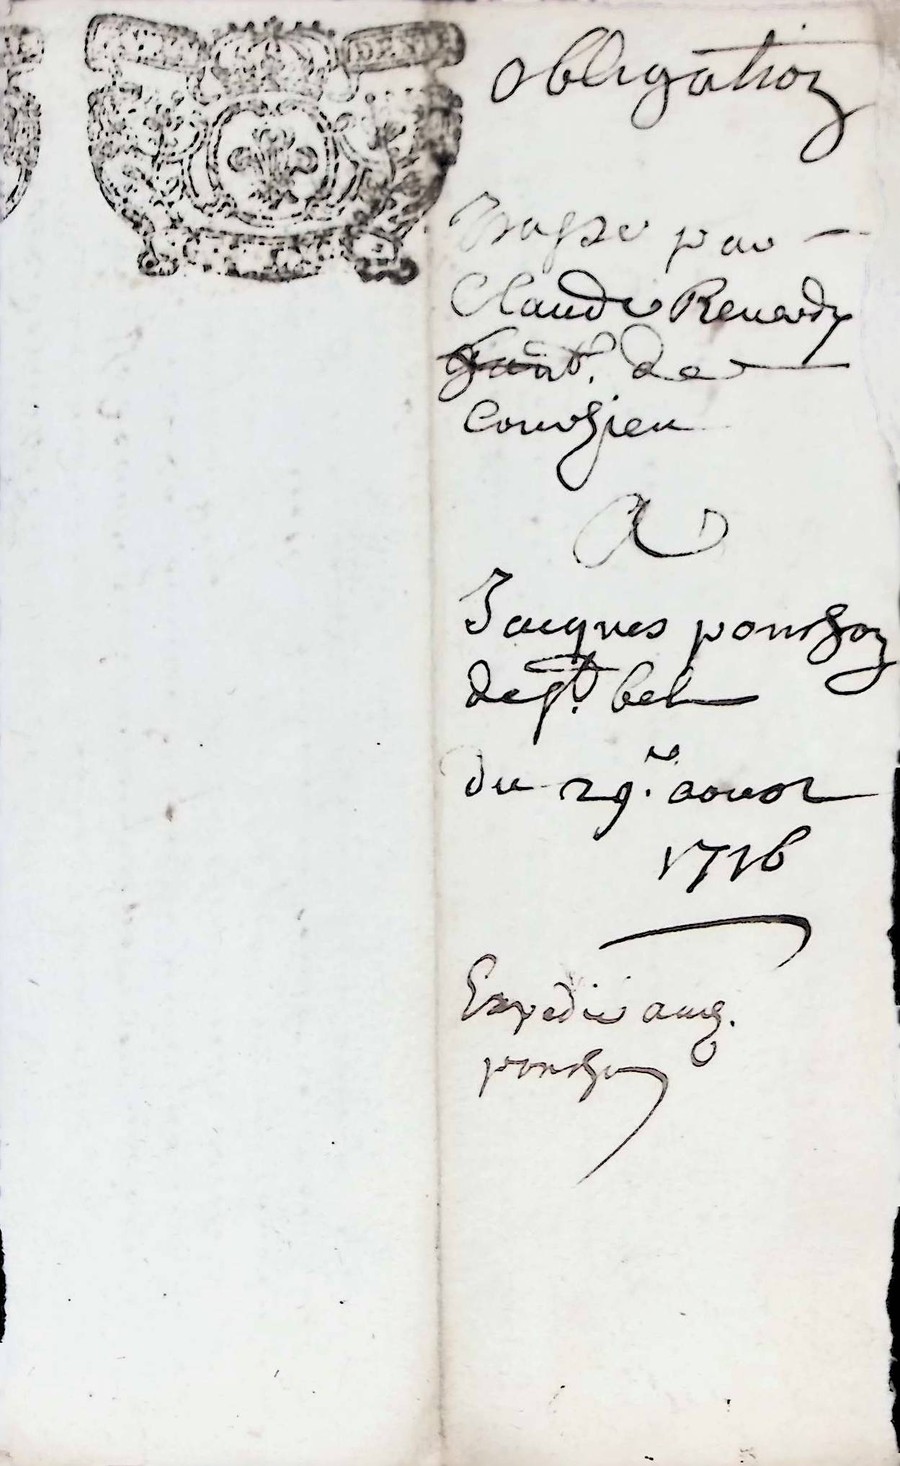 obligation
passé par
Claude Renardy
de
Coursieu
A
Jacques ponchon
de St. bel
du 29.e aoust
1716
Expedié aud.
ponchon